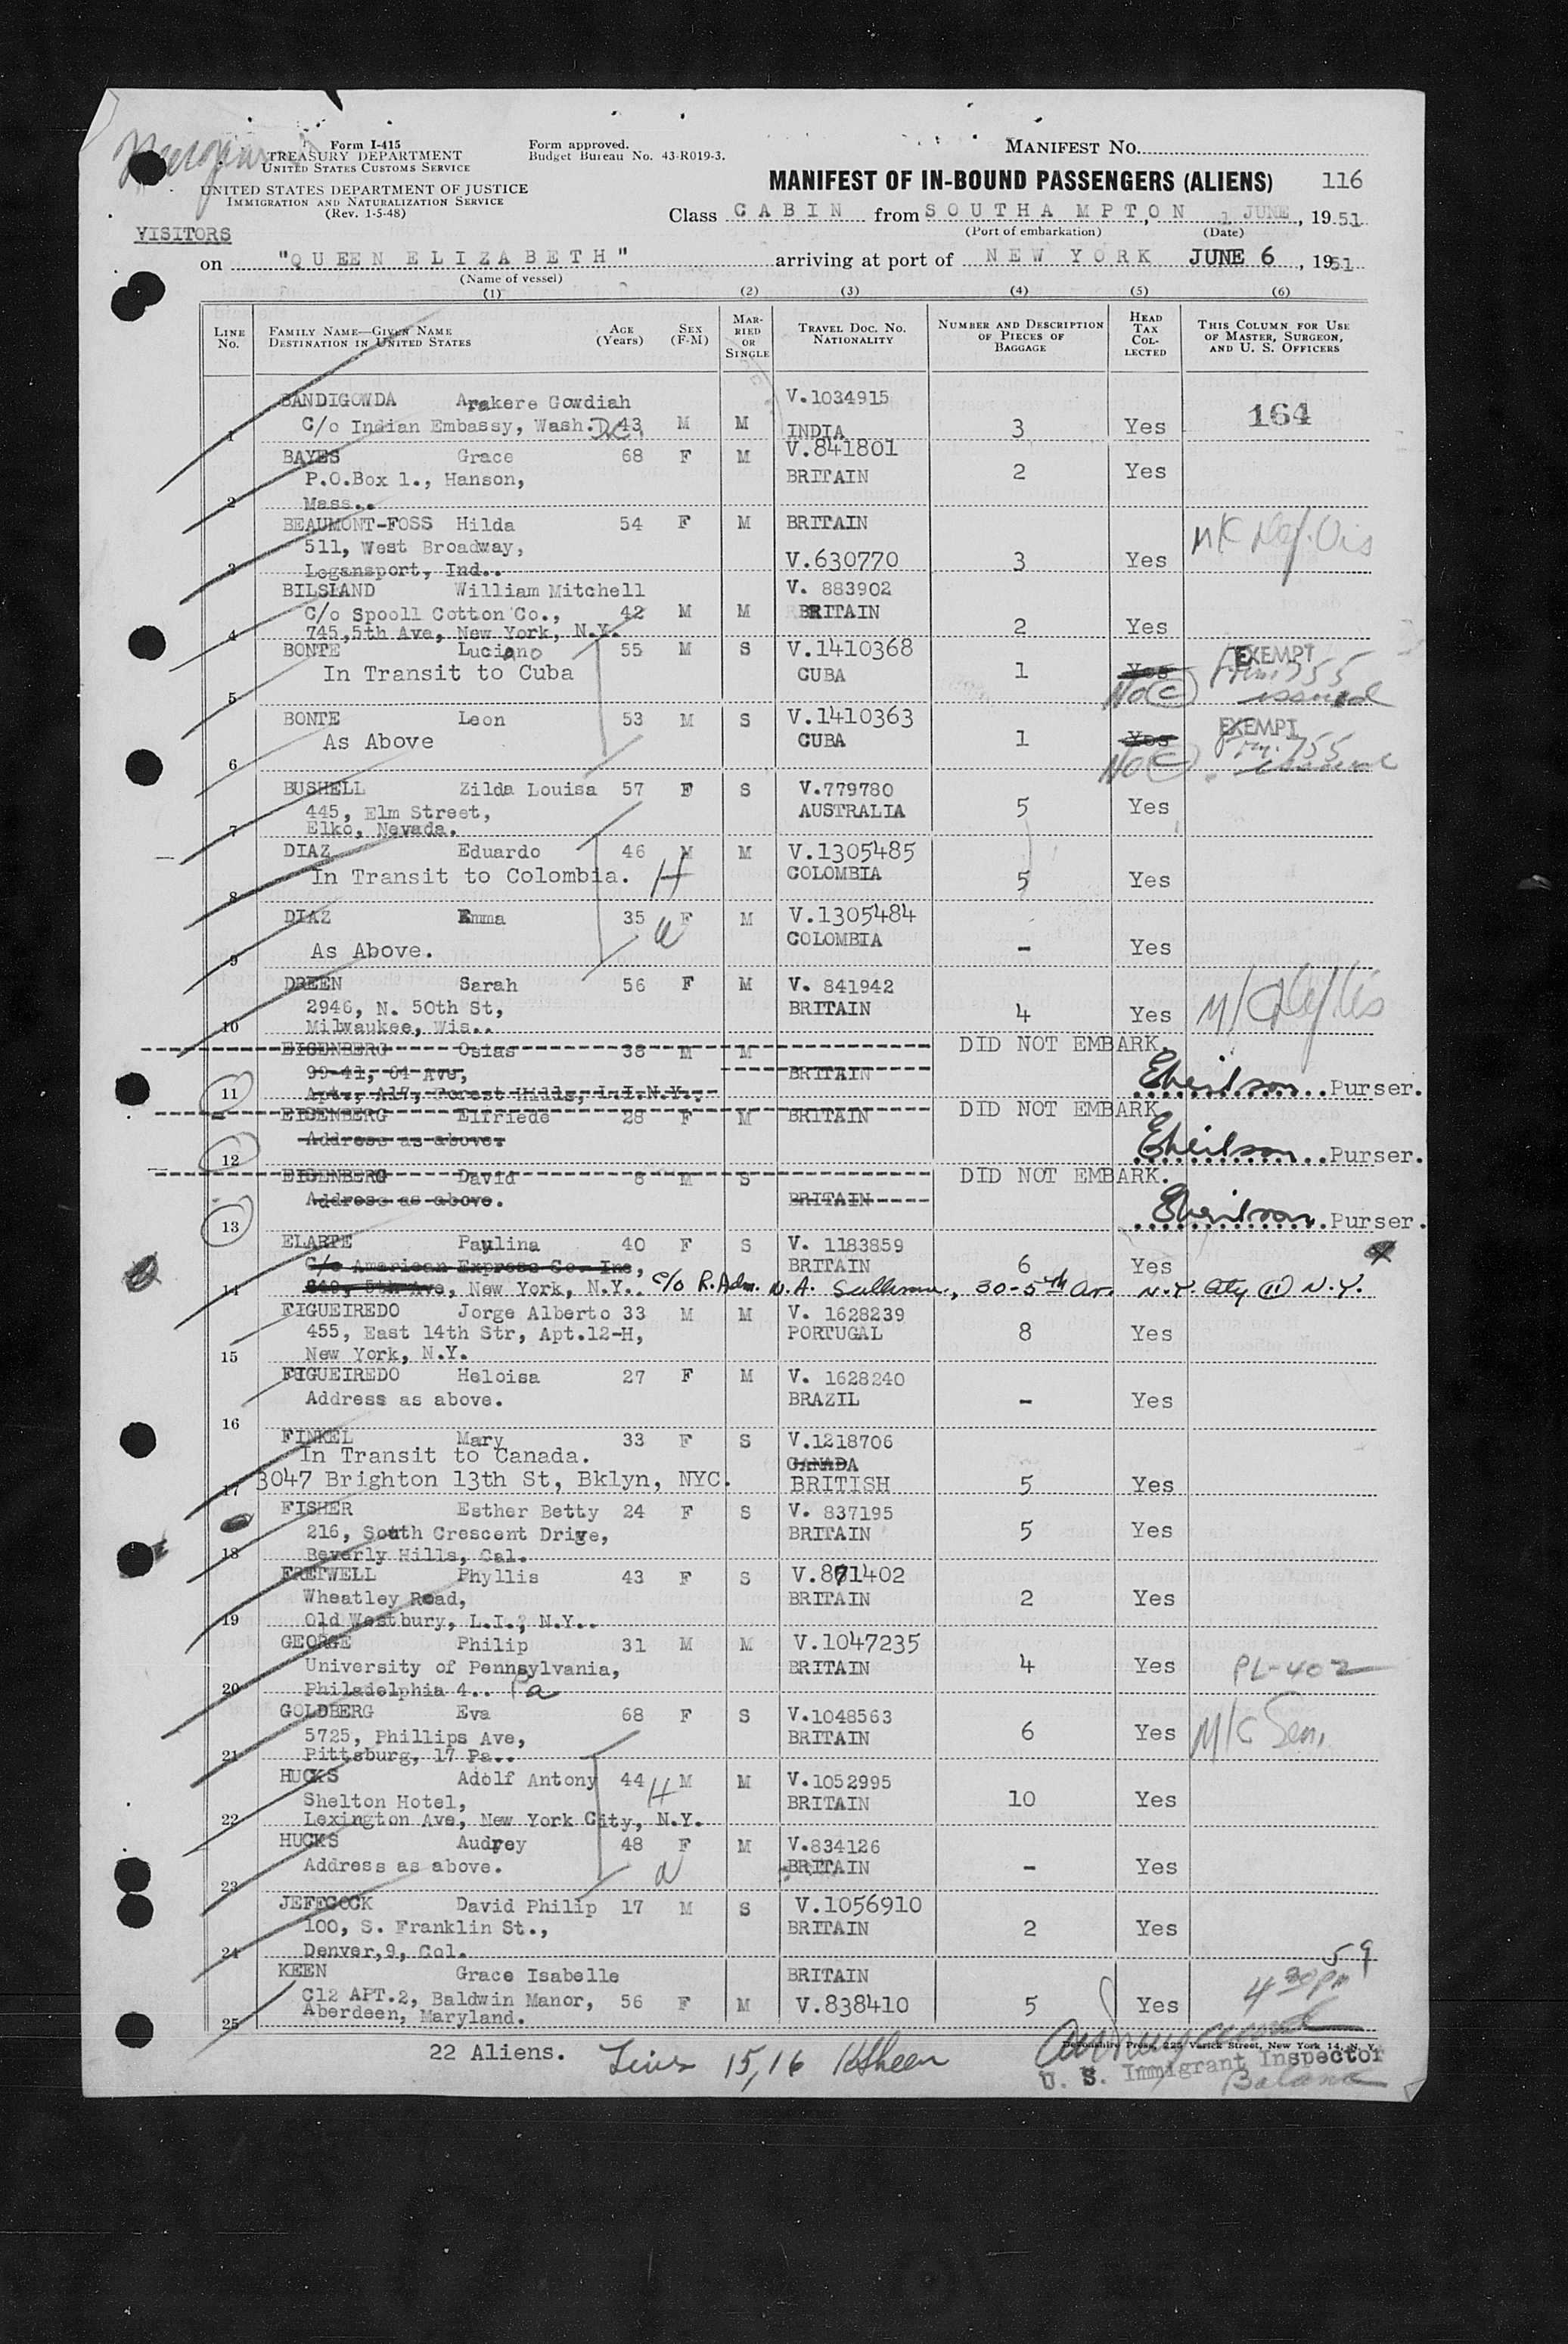 Form I-415
TREASURY DEPARTMENT
UNITED STATES CUSTOMS SERVICE
UNITED STATES DEPARTMENT OF JUSTICE
IMMIGRATION AND NATURALIZATION SERVICE
(Rev. 1-5-48)
Form approved.
Budget Bureau No. 43-R019-3.
MANIFEST NO.
MANIFEST OF IN-BOUND PASSENGERS (ALIENS) 116
Class CABIN from SOUTHAMPTON, 1 JUNE, 1951
(Port of embarkation) (Date)
VISITORS
on "QUEEN ELIZABETH" arriving at port of NEW YORK JUNE 6, 1951
(Name of vessel)
(1) (2) (3) (4) (5) (6)
LINE NO. FAMILY NAME—GIVEN NAME DESTINATION IN UNITED STATES AGE (YEARS) SEX (F-M) MARRIED OR SINGLE TRAVEL DOC. NO. NATIONALITY NUMBER AND DESCRIPTION OF PIECES OF BAGGAGE HEAD TAX COLLECTED THIS COLUMN FOR USE OF MASTER, SURGEON, AND U. S. OFFICERS
BANDIGOWDA Arakere Gowdiah V.1034915 164
1 C/o Indian Embassy, Wash. D.C. 43 M M INDIA 3 Yes
BAYES Grace 68 F M V.841801
P.O.Box 1., Hanson, BRITAIN 2 Yes
2 Mass..
BEAUMONT-FOSS Hilda 54 F M BRITAIN
511, West Broadway,
3 Logansport, Ind.. V.630770 3 Yes
BILSLAND William Mitchell V. 883902
C/o Spooll Cotton Co., 42 M M BRITAIN
4 745,5th Ave, New York, N.Y. 2 Yes
BONTE Luciano 55 M S V.1410368 EXEMPT
In Transit to Cuba CUBA 1 Yes 755
5 No (C) issued
BONTE Leon 53 M S V.1410363 EXEMPT
As Above CUBA 1 Yes 755
6 No (C)
BUSHELL Zilda Louisa 57 F S V.779780
445, Elm Street, AUSTRALIA 5 Yes
7 Elko, Nevada.
DIAZ Eduardo 46 M M V.1305485
8 In Transit to Colombia. H COLOMBIA 5 Yes
DIAZ Emma 35 F M V.1305484
9 As Above. W COLOMBIA - Yes
DREEN Sarah 56 F M V. 841942
2946, N. 50th St, BRITAIN 4 Yes
10 Milwaukee, Wis..
EISENBERG Osias 38 M M DID NOT EMBARK.
99-41, 64 Ave, BRITAIN
11 Apt., A17, Forest Hills, L.I.N.Y., Purser.
EISENBERG Elfriede 28 F M BRITAIN DID NOT EMBARK
Address as above.
12 Purser.
EISENBERG David 8 M S DID NOT EMBARK.
Address as above. BRITAIN
13 Purser.
ELARTE Paulina 40 F S V. 1183859
C/o American Express Co. Inc, BRITAIN 6 Yes
14 649, 5th Ave, New York, N.Y.. c/o R.Adm. N.A. 30-5th Av. N.Y. City (11) N.Y.
FIGUEIREDO Jorge Alberto 33 M M V. 1628239
455, East 14th Str, Apt.12-H, PORTUGAL 8 Yes
15 New York, N.Y.
FIGUEIREDO Heloisa 27 F M V. 1628240
Address as above. BRAZIL - Yes
16
FINKEL Mary 33 F S V.1218706
In Transit to Canada. CANADA
17 3047 Brighton 13th St, Bklyn, NYC. BRITISH 5 Yes
FISHER Esther Betty 24 F S V. 837195
216, South Crescent Drive, BRITAIN 5 Yes
18 Beverly Hills, Cal.
FRETWELL Phyllis 43 F S V.871402
Wheatley Road, BRITAIN 2 Yes
19 Old Westbury, L.I., N.Y..
GEORGE Philip 31 M M V.1047235
University of Pennsylvania, BRITAIN 4 Yes PL-402
20 Philadelphia 4.. Pa
GOLDBERG Eva 68 F S V.1048563
5725, Phillips Ave, BRITAIN 6 Yes
21 Pittsburg, 17 Pa..
HUCKS Adolf Antony 44 H M M V.1052995
Shelton Hotel, BRITAIN 10 Yes
22 Lexington Ave, New York City, N.Y.
HUCKS Audrey 48 F M V.834126
Address as above. W BRITAIN - Yes
23
JEFFCOCK David Philip 17 M S V.1056910
100, S. Franklin St., BRITAIN 2 Yes
24 Denver,9, Col.
59
KEEN Grace Isabelle BRITAIN 4 30 PM
C12 APT.2, Baldwin Manor, 56 F M V.838410 5 Yes
25 Aberdeen, Maryland.
Devonshire Press, 225 Varick Street, New York 14, N. Y.
22 Aliens. Lines 15,16
U. S. Immigrant Inspector